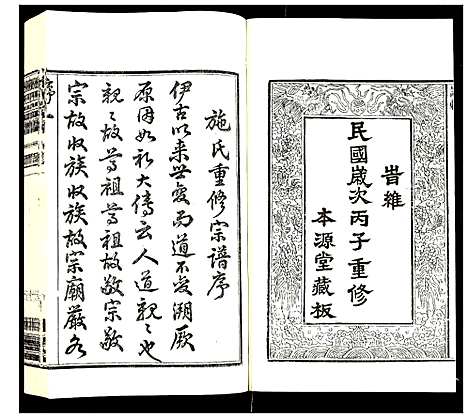 旹維
民國歲次丙子重修
本源堂藏板
施氏重修宗譜序
伊古以来世变而道不变溯厥
原因如礼大傳云人道親〻也
親〻故尊祖尊祖故敬宗敬
宗故收族收族故宗廟嚴各